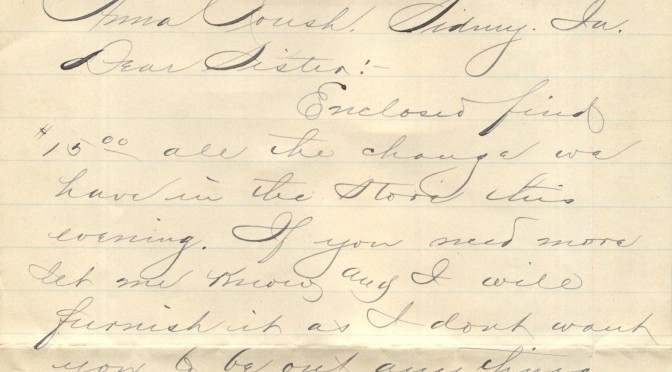 Anna Roush. Sidney. Ia.
Dear Sister:-
Enclosed find
$15.00 all the change we
have in the store this
evening. If you need more
let me know, and I will
furnish it as I dont want
you to be out anything